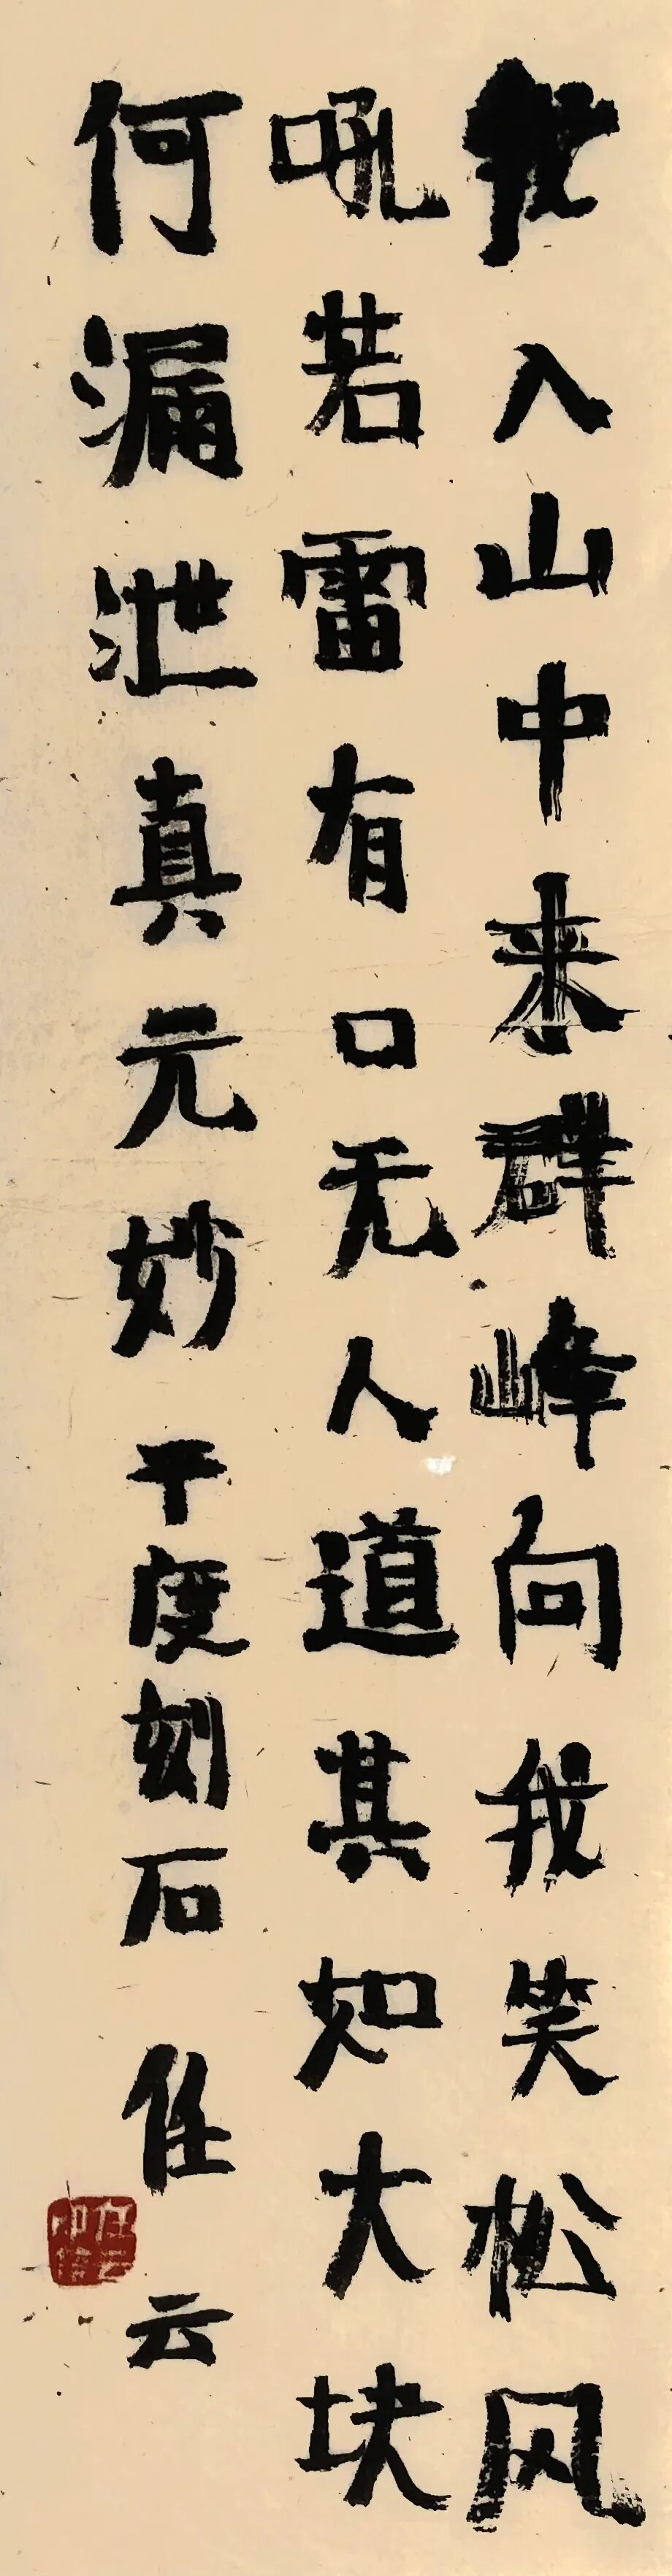 我入山中来群峰向我笑松风
吼若雷有口无人道其如大块
何漏泄真元妙 千度刻石 任云